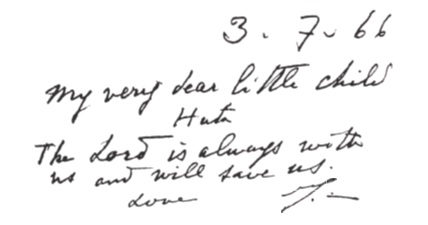 3. 7. 66
My very dear little child
Huta
The Lord is always with
us and will save us.
Love